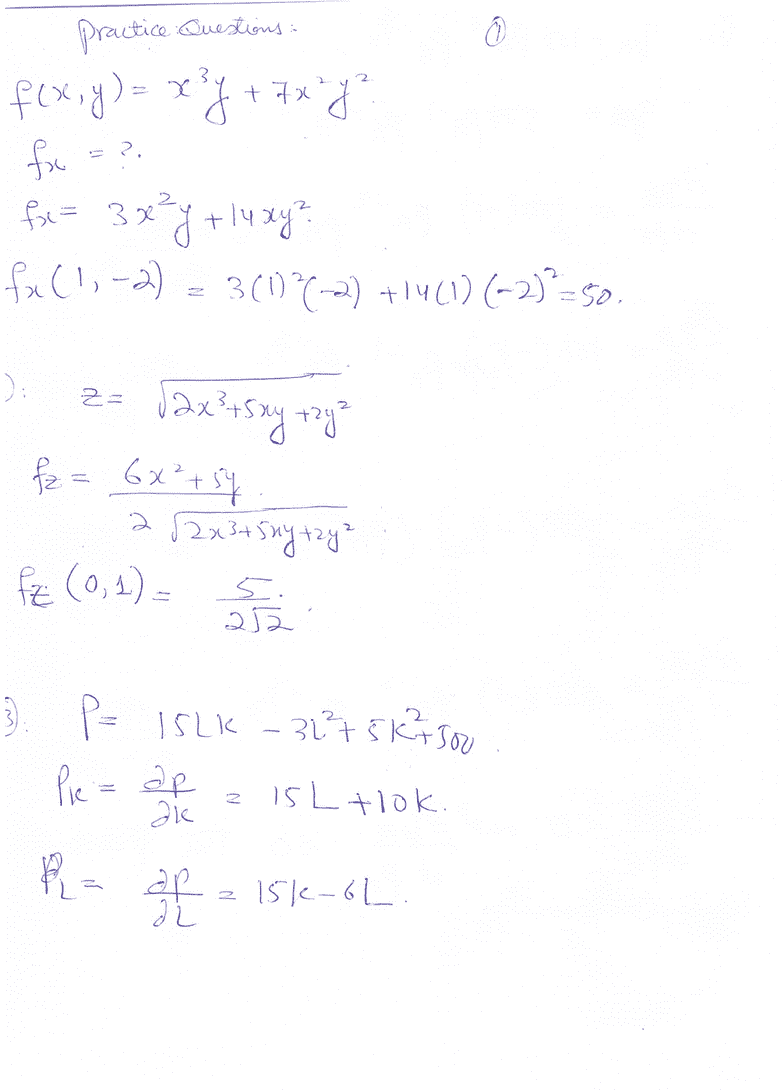 Practice Questions: ①
f(x,y) = x³y + 7x²y²
fx = ?.
fx = 3x²y + 14xy².
fx(1,-2) = 3(1)²(-2) + 14(1)(-2)² = 50.
): z = √(2x³+5xy+2y²)
fz = (6x²+5y) / (2√(2x³+5xy+2y²))
fz(0,1) = 5 / (2√2)
3). P = 15LK - 3L² + 5K² + 500.
PK = ∂P/∂K = 15L + 10K.
PL = ∂P/∂L = 15K - 6L.